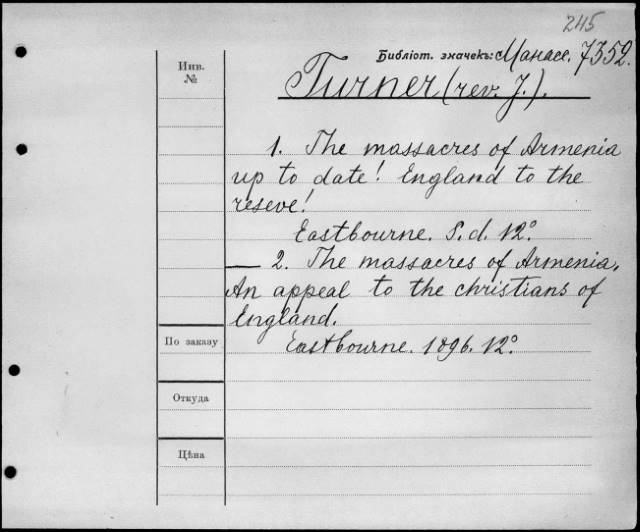 245
Библіот. значекъ: Манасс. 7352.
Инв.
№
Turner (rev. J.).
1. The massacres of Armenia
up to date! England to the
reseve!
Eastbourne. S. d. 12°
— 2. The massacres of Armenia.
An appeal to the christians of
England.
По заказу
Eastbourne. 1896. 12°.
Откуда
Цѣна